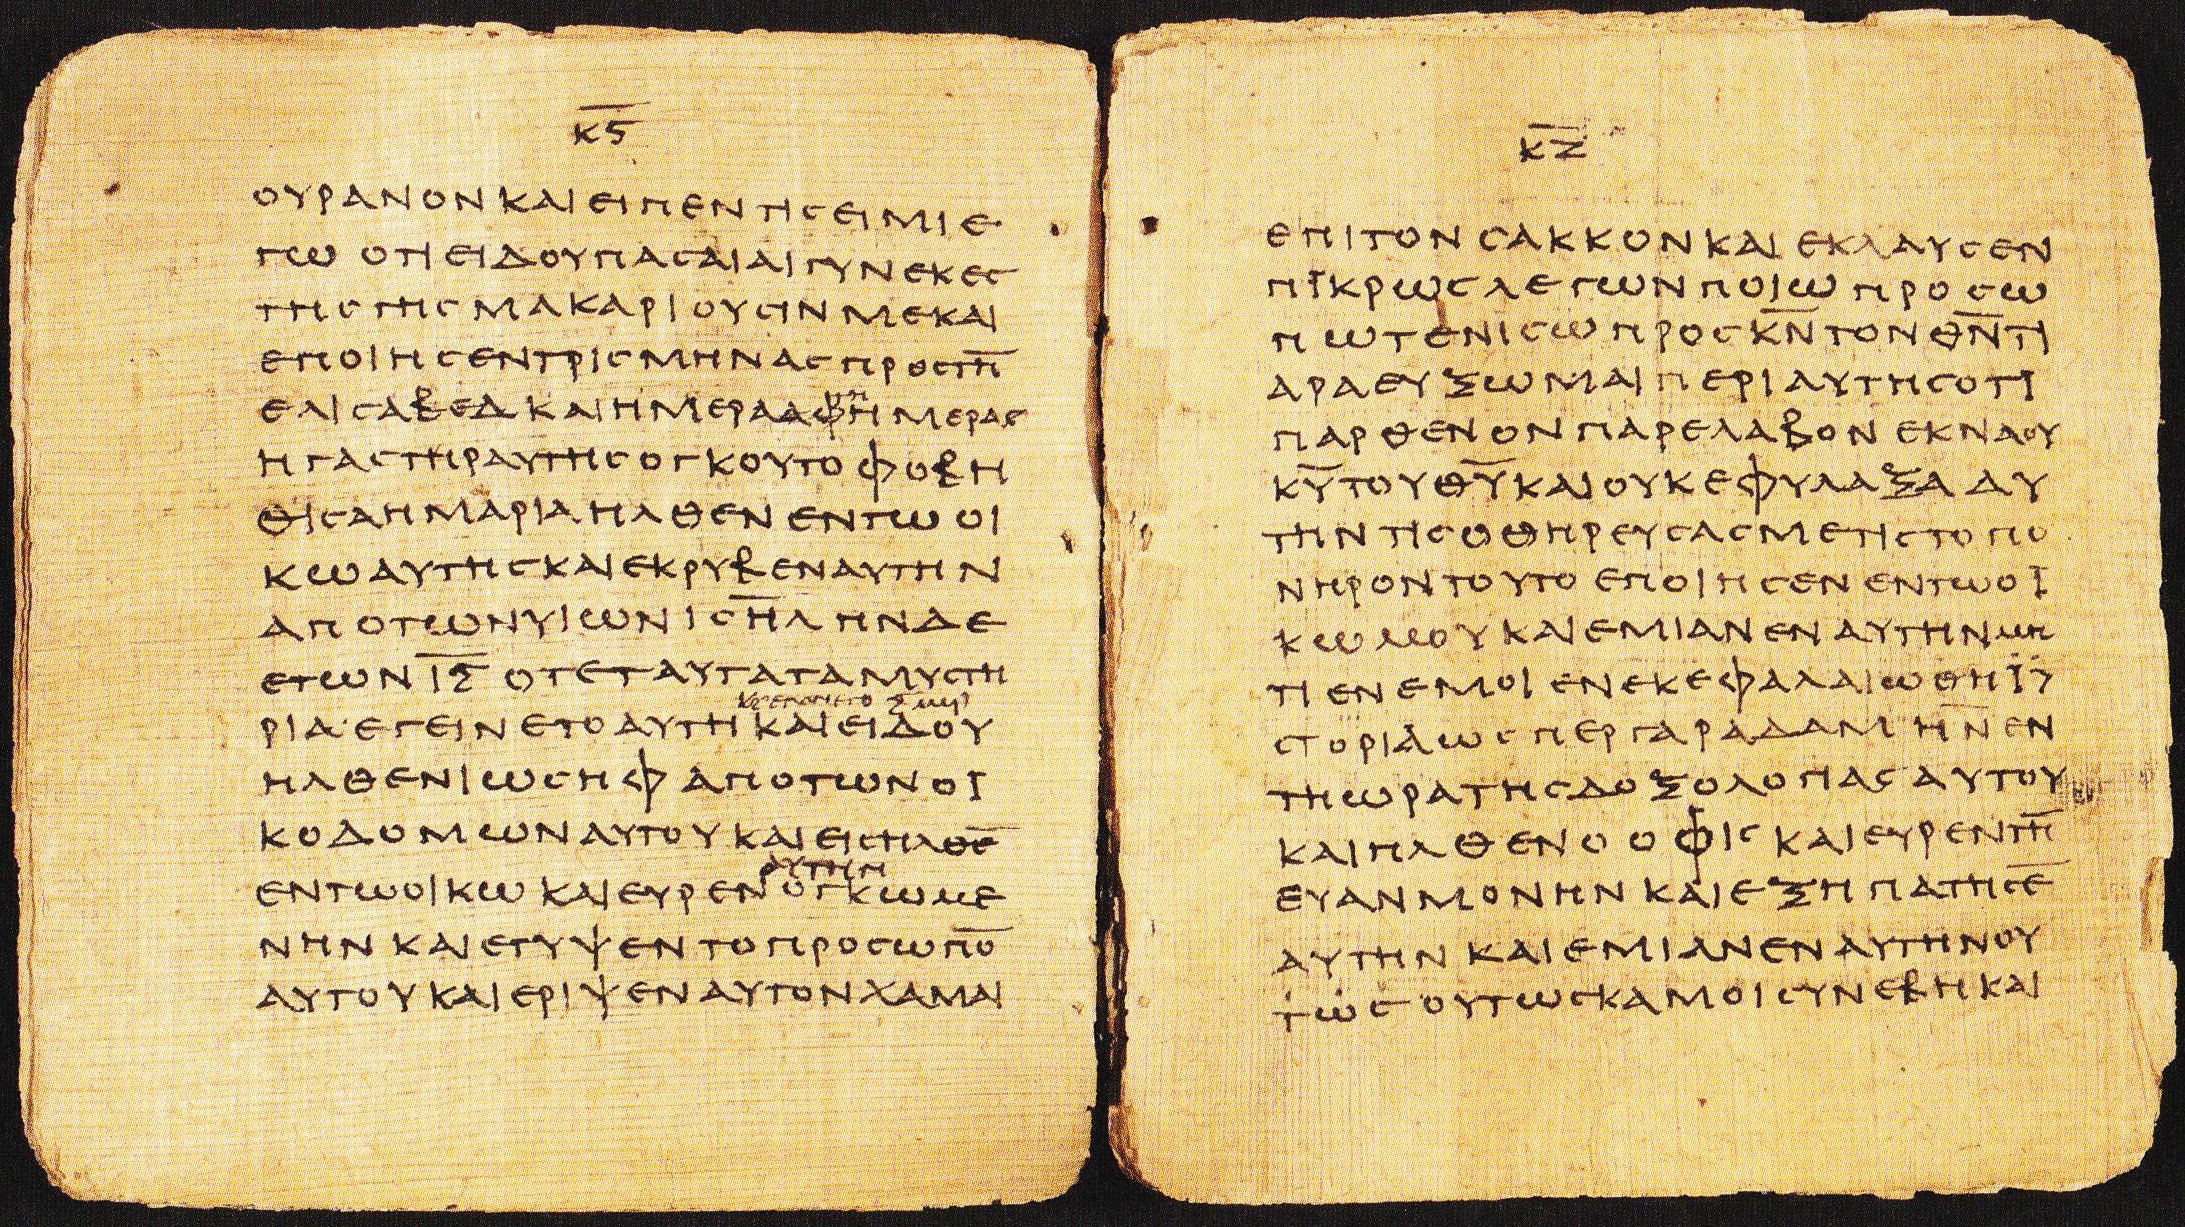 Κ̅Ϛ̅
ΟΥΡΑΝΟΝΚΑΙΕΙΠΕΝΤΙϹΕΙΜΙΕ
ΓΩΟΤΙΕΙΔΟΥΠΑϹΑΙΑΙΓΥΝΕΚΕϹ
ΤΗϹΓΗϹΜΑΚΑΡΙΟΥϹΙΝΜΕΚΑΙ
ΕΠΟΙΗϹΕΝΤΡΙϹΜΗΝΑϹΠΡΟϹΤΗ̅
ΕΛΙϹΑΒΕΔΚΑΙΗΜΕΡΑΑΦΗΜΕΡΑϹ
ΗΓΑϹΤΗΡΑΥΤΗϹΟΓΚΟΥΤΟΦΟΒΗ
ΘΙϹΑΗΜΑΡΙΑΗΛΘΕΝΕΝΤΩΟΙ
ΚΩΑΥΤΗϹΚΑΙΕΚΡΥΒΕΝΑΥΤΗΝ
ΑΠΟΤΩΝΥΙΩΝΙϹΗ̅ΛΗΝΔΕ
ΕΤΩΝΙ̅Ϛ̅ΟΤΕΤΑΥΤΑΤΑΜΥϹΤΗ
ΡΙΑ·ΕΓΕΙΝΕΤΟΑΥΤΗΚΑΙΕΙΔΟΥ
ΗΛΘΕΝΙΩϹΗΦΑΠΟΤΩΝΟΙ
ΚΟΔΟΜΩΝΑΥΤΟΥΚΑΙΕΙϹΗΛΘΕ̅
ΑΥΤΗΝ
ΕΝΤΩΟΙΚΩΚΑΙΕΥΡΕΝΟΓΚΩΜΕ
ΝΗΝΚΑΙΕΤΥΨΕΝΤΟΠΡΟϹΩΠΟ̅
ΑΥΤΟΥΚΑΙΕΡΙΨΕΝΑΥΤΟΝΧΑΜΑΙ
Κ̅Ζ̅
ΕΠΙΤΟΝϹΑΚΚΟΝΚΑΙΕΚΛΑΥϹΕΝ
ΠΙΚΡΩϹΛΕΓΩΝΠΟΙΩΠΡΟϹΩ
ΠΩΤΕΝΙϹΩΠΡΟϹΚ̅Ν̅ΤΟΝΘ̅Ν̅ΤΙ
ΑΡΑΕΥΞΩΜΑΙΠΕΡΙΑΥΤΗϹΟΤΙ
ΠΑΡΘΕΝΟΝΠΑΡΕΛΑΒΟΝΕΚΝΑΟΥ
Κ̅Υ̅ΤΟΥΘ̅Υ̅ΚΑΙΟΥΚΕΦΥΛΑΞΑΑΥ
ΤΗΝΤΙϹΟΘΗΡΕΥϹΑϹΜΕΤΙϹΤΟΠΟ
ΝΗΡΟΝΤΟΥΤΟΕΠΟΙΗϹΕΝΕΝΤΩΟΙ
ΚΩΜΟΥΚΑΙΕΜΙΑΝΕΝΑΥΤΗΝΜΗ
ΤΙΕΝΕΜΟΙΕΝΕΚΕΦΑΛΑΙΩΘΗΪ
ϹΤΟΡΙΑΩϹΠΕΡΓΑΡΑΔΑΜΗΝΕΝ
ΤΗΩΡΑΤΗϹΔΟΞΟΛΟΓΙΑϹΑΥΤΟΥ
ΚΑΙΗΛΘΕΝΟΟΦΙϹΚΑΙΕΥΡΕΝΤΗ̅
ΕΥΑΝΜΟΝΗΝΚΑΙΕΞΗΠΑΤΗϹΕ̅
ΑΥΤΗΝΚΑΙΕΜΙΑΝΕΝΑΥΤΗΝΟΥ
ΤΩϹΟΥΤΩϹΚΑΜΟΙϹΥΝΕΒΗΚΑΙ